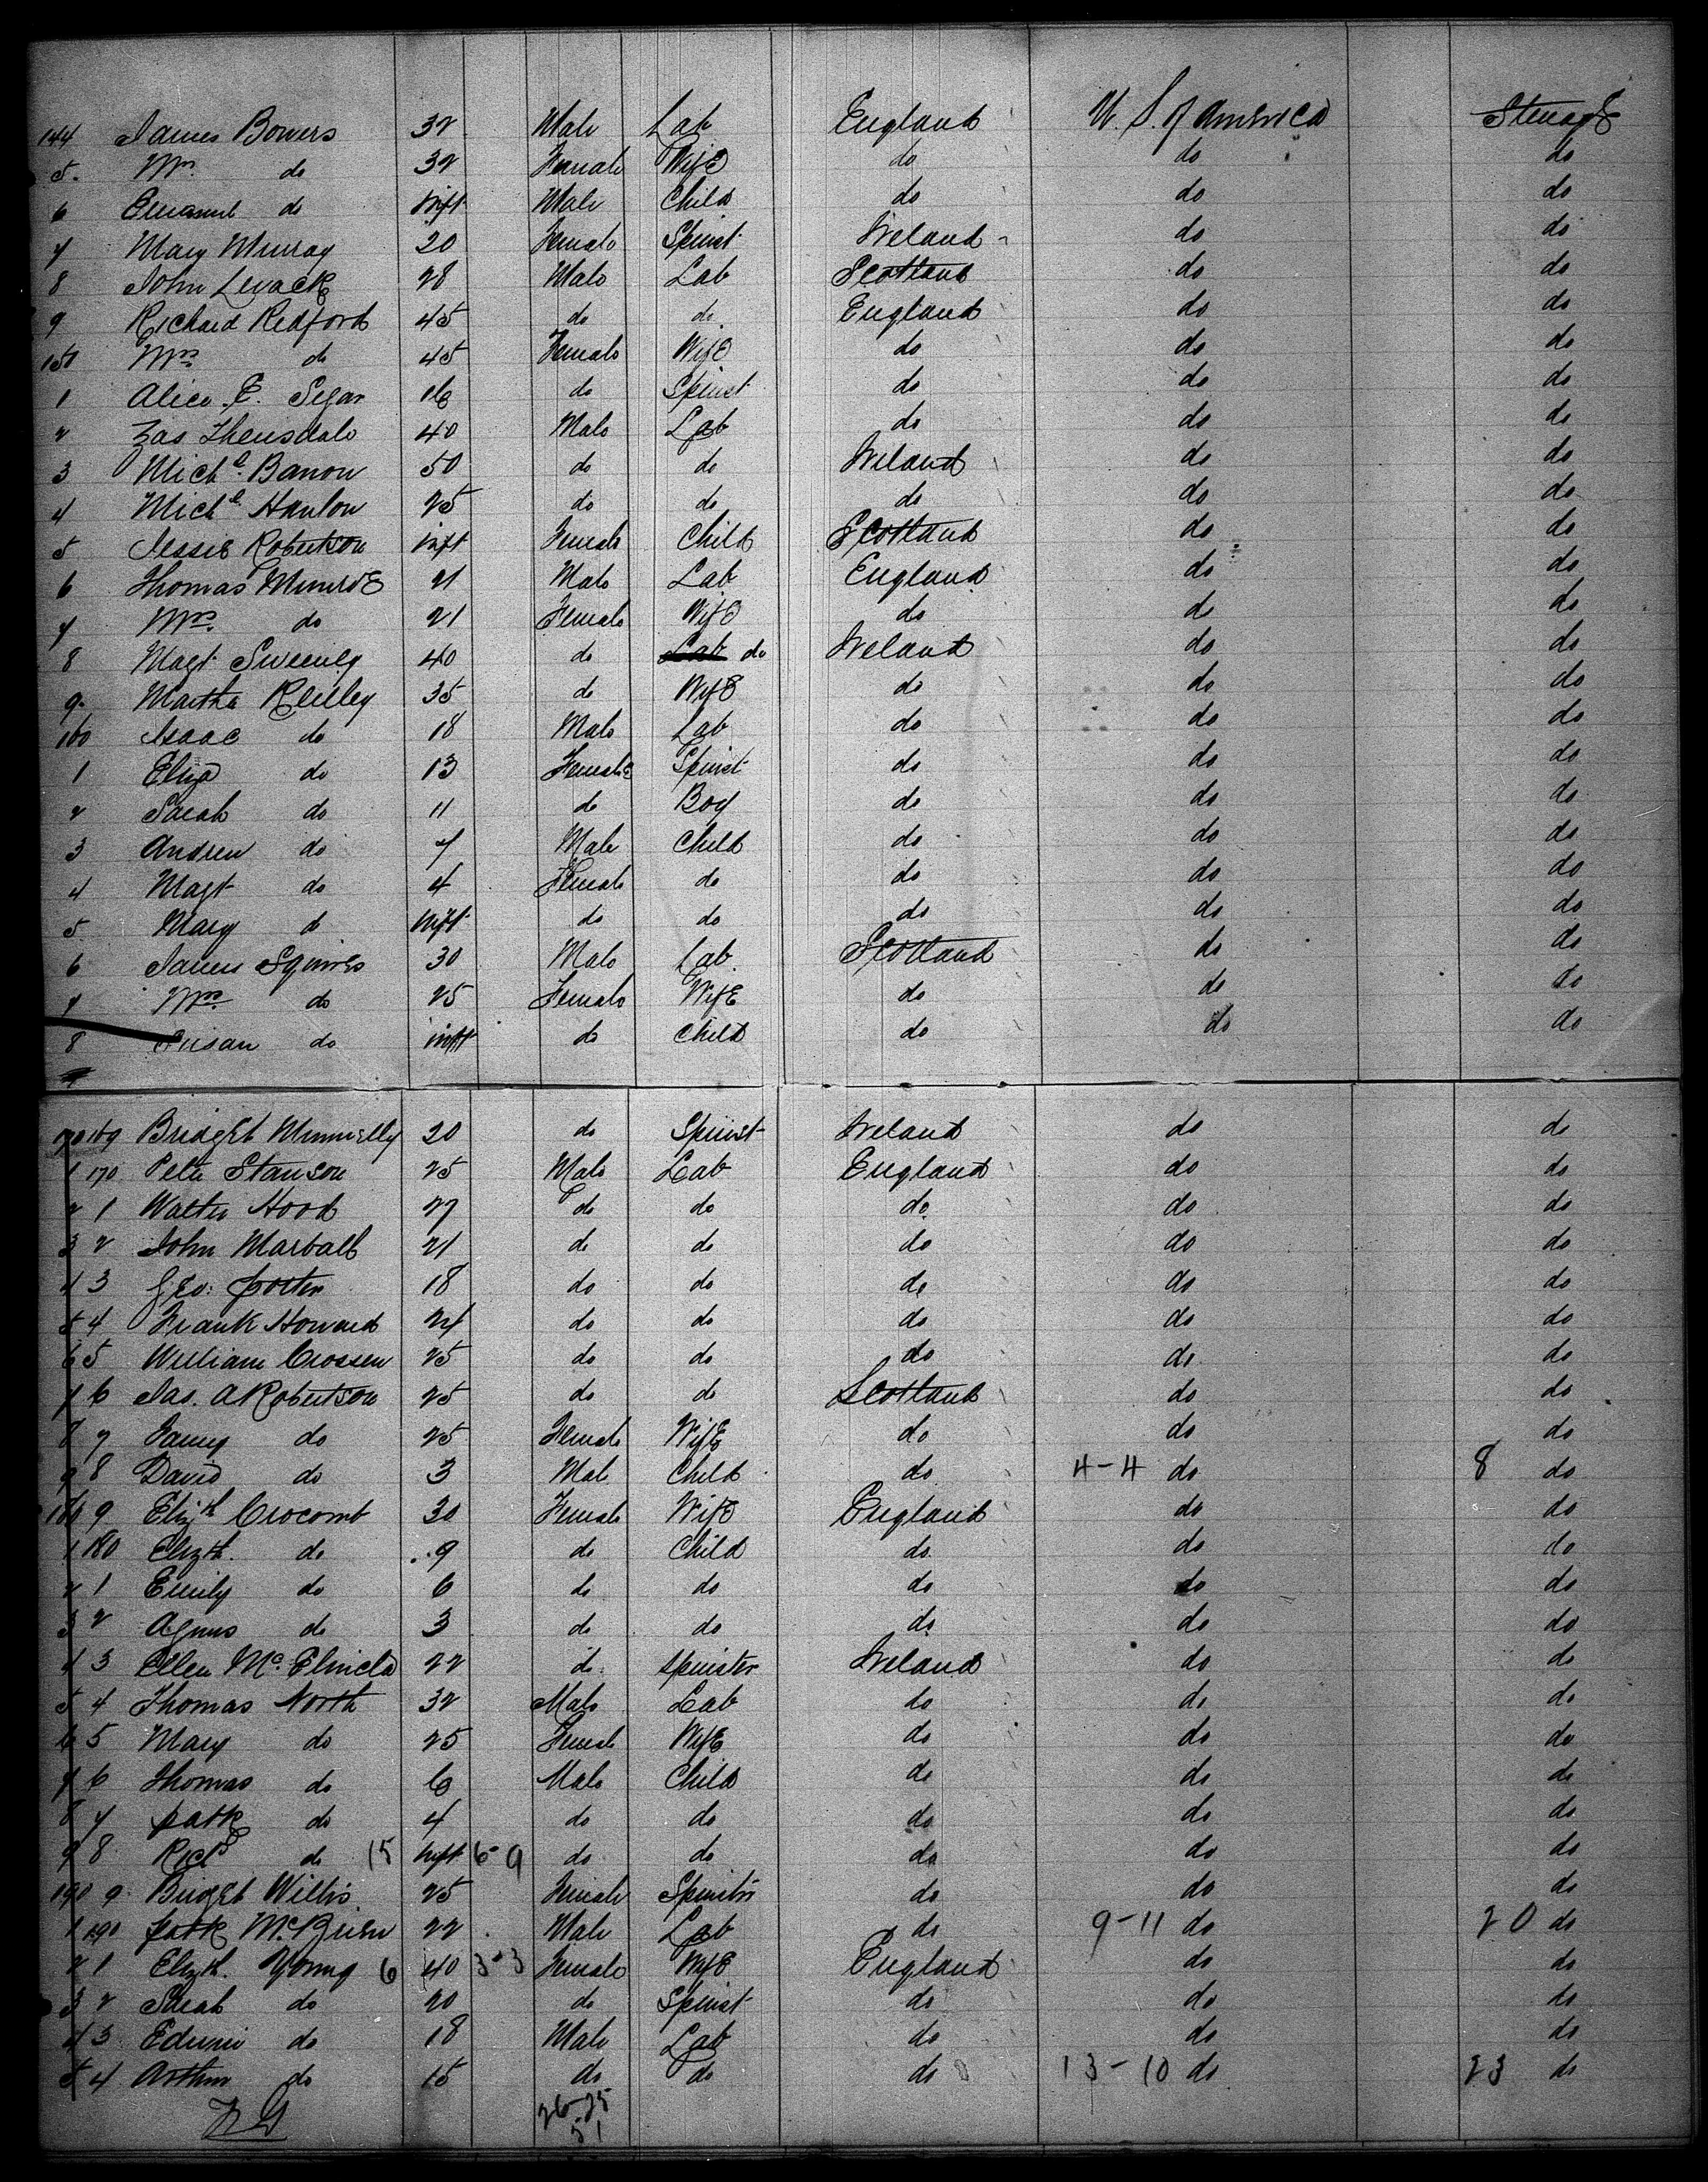 144 James Bowers 32 Male Lab England U. S. of America Steerage
5. Mrs. do 32 Female Wife do do do
6 Emanuel do inft Male Child do do do
7 Mary Murray 20 Female Spinst Ireland do do
8 John Levack 28 Male Lab Scotland do do
9 Richard Redford 45 do do England do do
150 Mrs do 45 Female Wife do do do
1 Alice E. Segar 16 do Spinst do do do
2 Jas 40 Male Lab do do do
3 Michl. Banon 50 do do Ireland do do
4 Michl. Hanlon 25 do do do do do
5 Jessie Robertson inft Female Child Scotland do do
6 Thomas Munroe 21 Male Lab England do do
7 Mrs. do 21 Female Wife do do do
8 Magt Sweeney 40 do Lab do Ireland do do
9. Martha Reilley 35 do Wife do do do
160 Isaac do 18 Male Lab do do do
1 Eliza do 13 Female Spinst do do do
2 Sarah do 11 do Boy do do do
3 Andrew do 7 Male Child do do do
4 Magt do 4 Female do do do do
5 Mary do inft do do do do do
6 James Squires 30 Male Lab Scotland do do
7 Mrs do 25 Female Wife do do do
8 Susan do inft do Child do do do
169 Bridget Munnelly 20 do Spinst Ireland do do
1 170 Peter Stanson 25 Male Lab England do do
2 1 Walter Hood 27 do do do do do
3 2 John Marball 21 do do do do do
4 3 Geo: Porter 18 do do do do do
5 4 Frank Howard 24 do do do do do
6 5 William Crossen 25 do do do do do
7 6 Jas. A Robertson 25 do do Scotland do do
8 7 Fanny do 25 Female Wife do do do
9 8 David do 3 Male Child do 4-4 do 8 do
180 9 Elizth Crocomb 30 Female Wife England do do
1 180 Elizth. do 9 do Child do do do
2 1 Emily do 6 do do do do do
3 2 Agnes do 3 do do do do do
4 3 Ellen 22 do spinster Ireland do do
5 4 Thomas North 32 Male Lab do do do
6 5 Mary do 25 Female Wife do do do
7 6 Thomas do 6 Male Child do do do
8 7 Patk do 4 do do do do do
9 8 Richd do 15 inft 6-9 do do do do do
190 9 Bridget Willis 25 Female Spinstr do do do
1 190 Patk McBrien 22 Male Lab do 9-11 do 20 do
2 1 Elizth. Young 6 40 3-3 Female Wife England do do
3 2 Sarah do 20 do Spinst do do do
4 3 Edwin do 18 Male Lab do do do
5 4 Arthur do 15 do do do 13-10 do 23 do
26-25
51